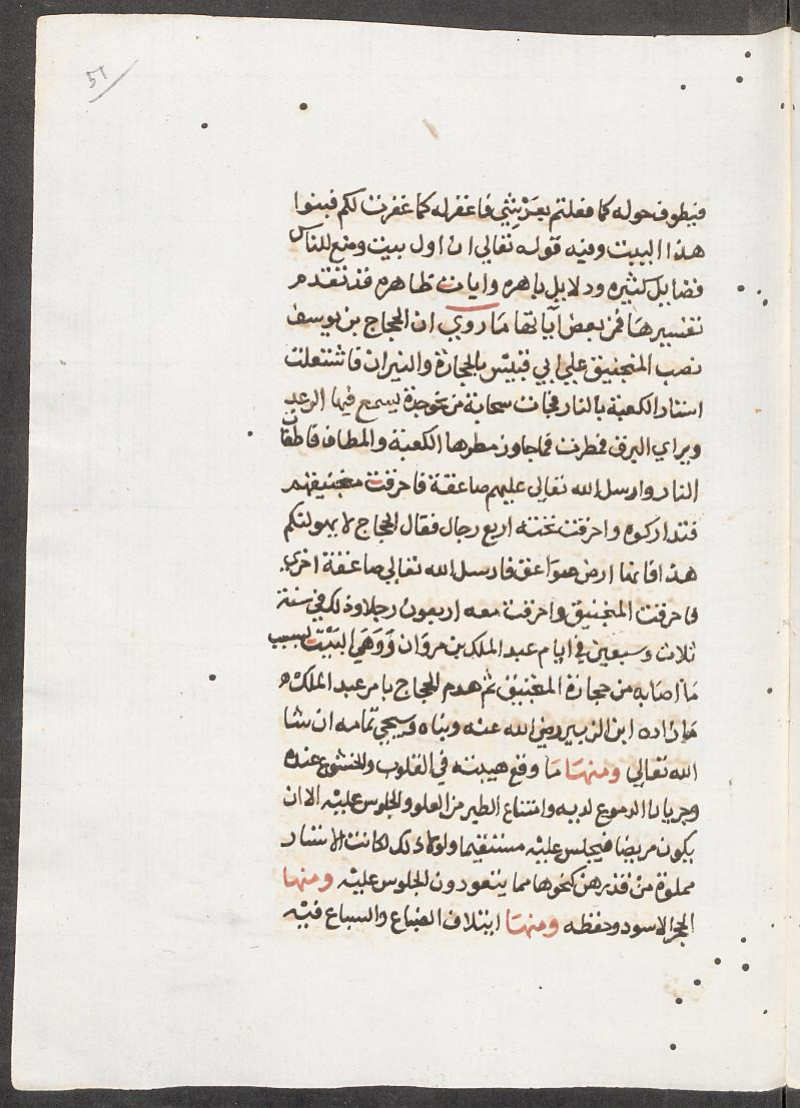 ٥١
فيطوف حوله كما فعلتم بعرشي فاغفر له كما غفرت لكم فبنوا
هذا البيت وفيه قوله تعالي ان اول بيت وضع للناس
فضايل كثيره ودلايل باهره وايات ظاهره قد تقدم
تفسيرها فمن بعض آياتها ما روي ان الحجاج بن يوسف
نصب المنجنيق علي ابي قبيس بالحجارة والنيران فاشتعلت
استار الكعبة بالنار فجات سحابة من نحو جدة يسمع فيها الرعد
ويراي البرق فمطرت فما جاوز مطرها الكعبة والمطاف فاطفات
النار وارسل الله تعالي عليهم صاعقة فاحرقت منجنيقهم
فتداركوه واحرقت تحته اربع رجال فقال الحجاج لا يهولنكم
هذا فانها ارض صواعق فارسل الله تعالي صاعقة اخري
فاحرقت المنجنيق واحرقت معه اربعون رجلا وذلك في سنة
ثلاث وسبعين في ايام عبد الملك بن مروان وَوَهَي البَيْت بسبب
ما اصابه من حجارة المنجنيق ثم هدم الحجاج بامر عبد الملك
ما زاده ابن الزبير رضي الله عنه وبناه وسيجي تمامه ان شا
الله تعالي ومنها ما وقع هيبته في القلوب والخشوع عنده
وجريان الدموع لديه وامتناع الطير من العلو والجلوس عليه الا ان
يكون مريضا فيجلس عليه مستشفيا ولولا ذلك لكانت الاستار
مملوة من قذرهن كنحوها مما يتعودون الجلوس عليه ومنها
الحجر الاسود وحفظه ومنها ايتلاف الضباع والسباع فيه